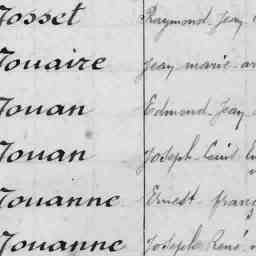 Josset Raymond Jean
Jouaire Jean marie
Jouan Edmond Jean
Jouan Joseph Louis
Jouanne Ernest franç
Jouanne Joseph René